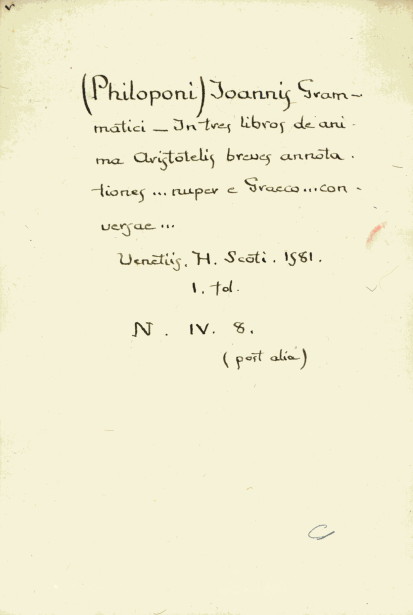 (Philoponi) Joannis Gram-
matici — In tres libros de ani-
ma Aristotelis breves annota-
tiones ... nuper e Graeco ... con-
versae ...
Venetiis. H. Scoti. 1581.
1. fol.
N. IV. 8.
(post alia)
C